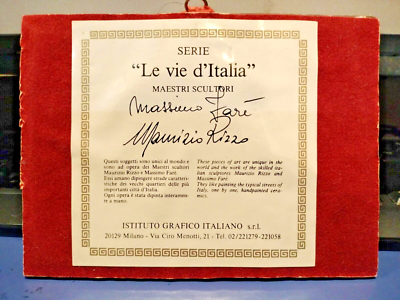 SERIE
"Le vie d'Italia"
MAESTRI SCULTORI
Massimo Farè
Maurizio Rizzo
Questi soggetti sono unici al mondo e
sono ad opera dei Maestri scultori
Maurizio Rizzo e Massimo Farè.
Essi amano dipingere strade caratteri-
stiche dei vecchi quartieri delle più
importanti città d'Italia.
Ogni opera è stata dipinta interamen-
te a mano.
These pieces of art are unique in the
world and the work of the skilled ita-
lian sculptores Maurizio Rizzo and
Massimo Farè.
They like painting the typical streets of
Italy, one by one, handpainted cera-
mics.
ISTITUTO GRAFICO ITALIANO s.r.l.
20129 Milano - Via Ciro Menotti, 21 - Tel. 02/221279-221058